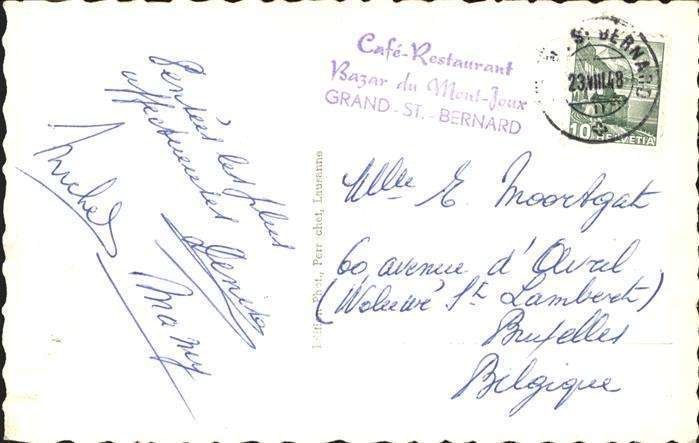 Pensées les plus
affectueuses
Denise
Michel
Mamy
Phot. Perrochet, Lausanne
Café-Restaurant
Bazar du Mont-Joux
GRAND-ST.-BERNARD
ST. BERNARD
23.VIII.48
10 HELVETIA
Mlle E. Moortgat
60 avenue d'Avril
(Woluwé St Lambert)
Bruxelles
Belgique